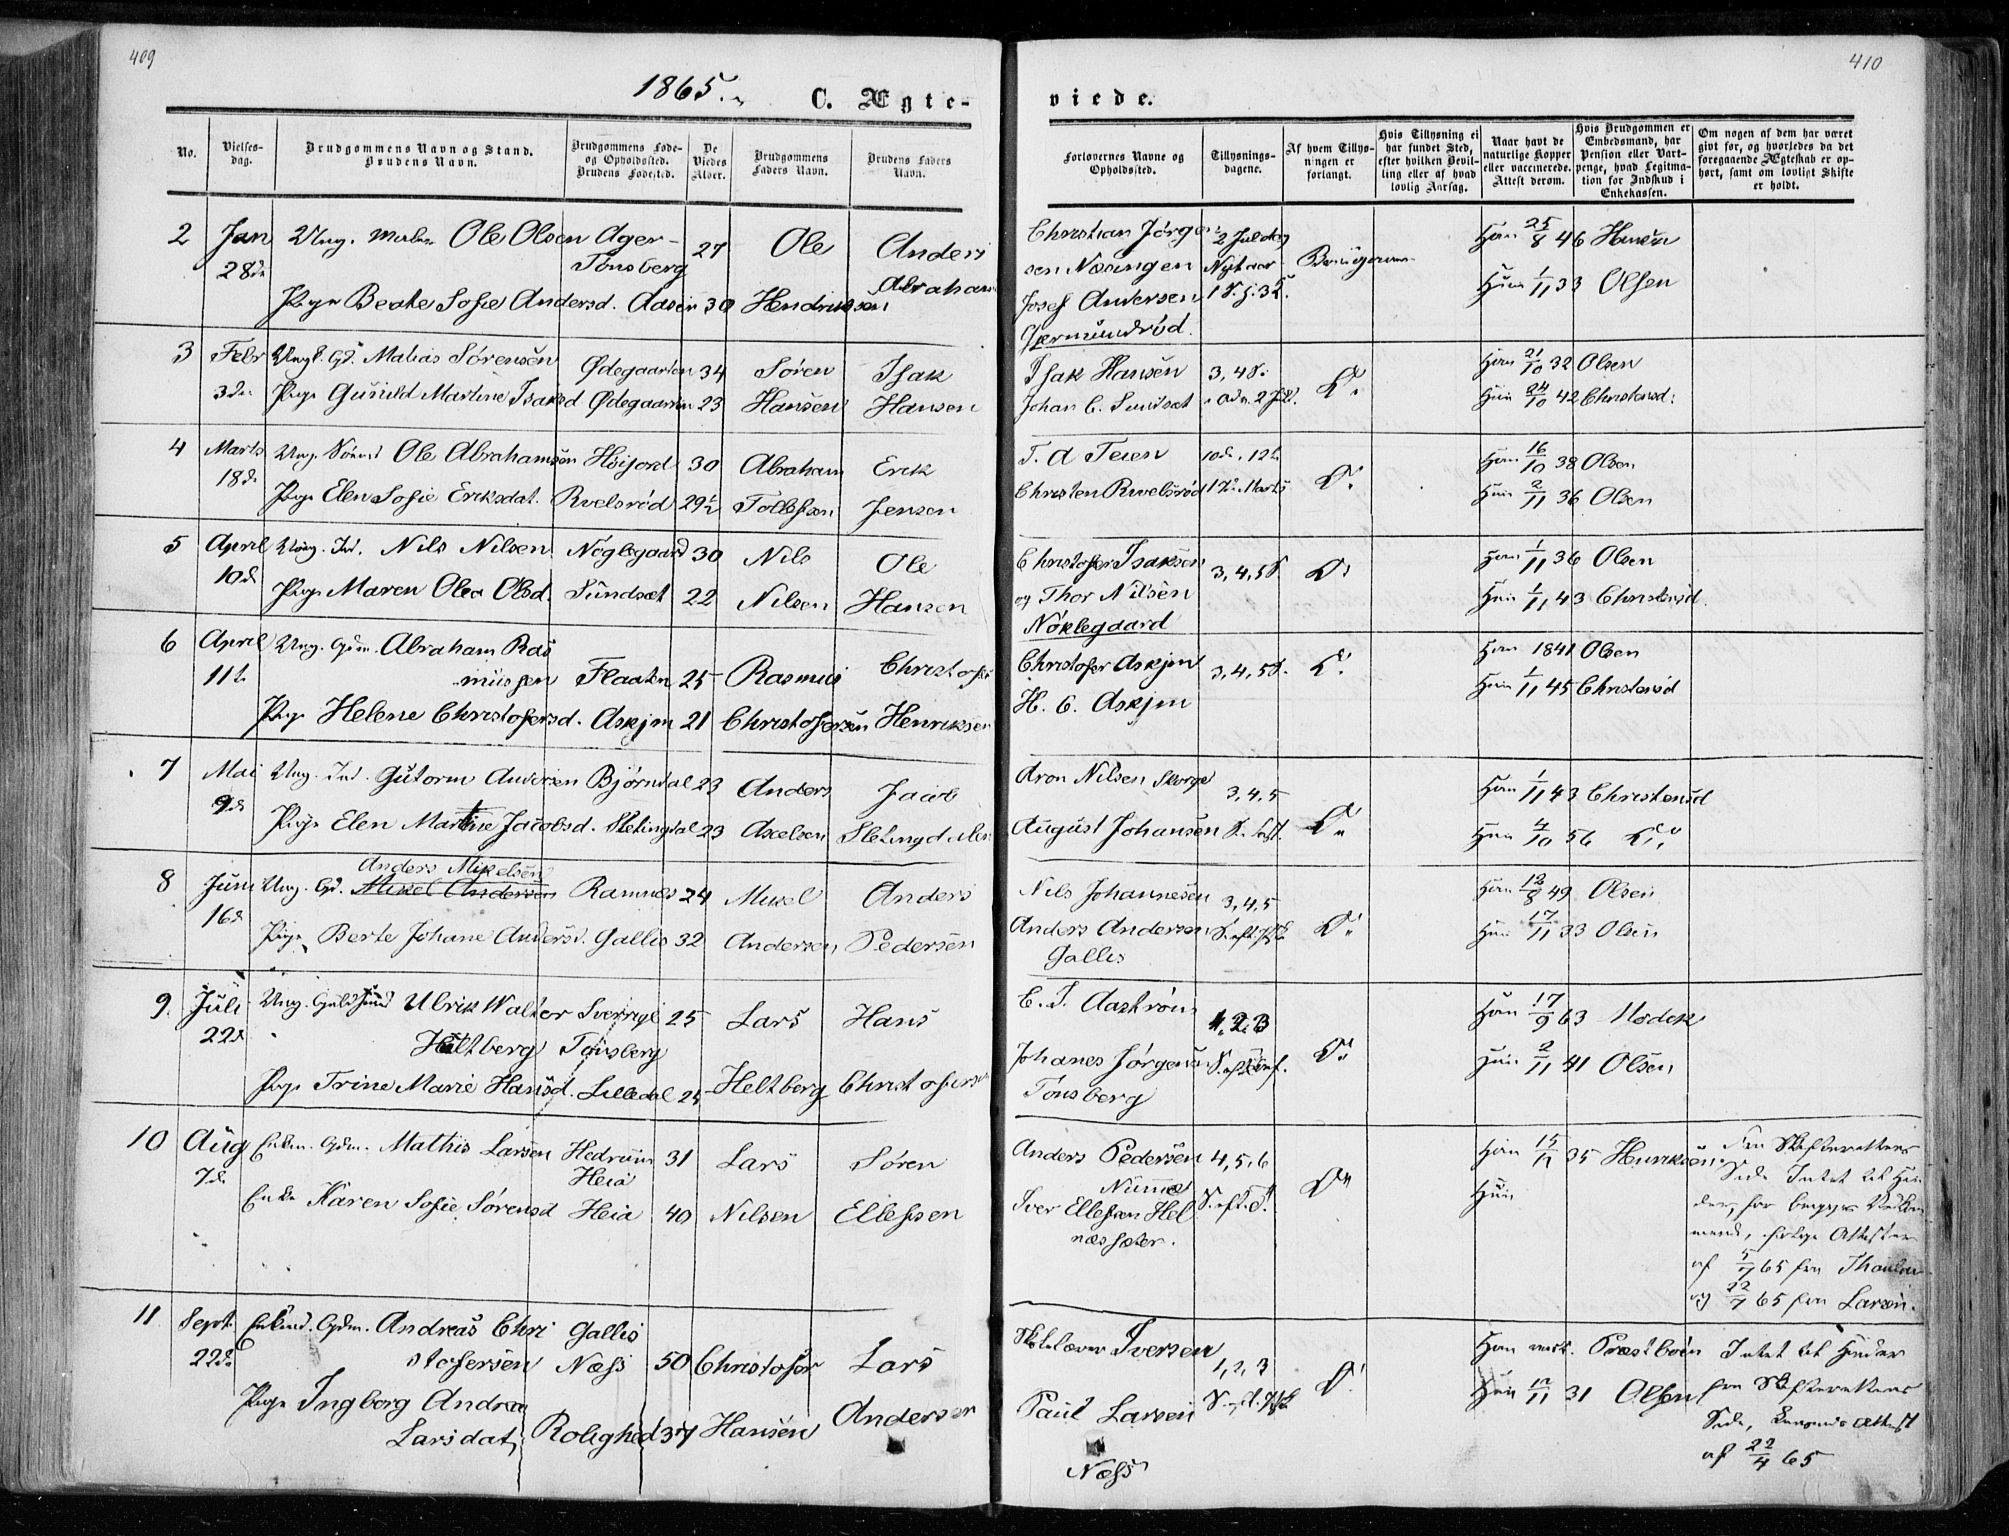 409
1865.
C. Ægte-
No.
Vielses-
dag.
Brudgommens Navn og Stand.
Brudens Navn.
Brudgommens Føde-
og Opholdssted.
Brudens Fødested.
De
Viedes
Alder.
Brudgommens
Faders Navn.
Brudens Faders
Navn.
2 Jan Ung. Ole Olsen Ager- 27 Ole Anders
28de Tønsberg Abraham
Pige Beate Sofie Andersd. Aasen 30 Hendriksen
3 Febr Ungk. Gd. Matias Sørensen Ødegaarden 34 Søren Isak
3de Pige Gunild Martine Isaksd Ødegaarden 23 Hansen Hansen
4 Marts Ung. Ole Abrahamsen Høijord 30 Abraham Erik
18de Pige Elen Sofie Eriksdat. Ruelsrød 29½ Tollefsen Jensen
5 April Ung. Ind. Nils Nilsen Nøglegaard 30 Nils Ole
10de Pige Maren Olea Olsd. Sundsæt 22 Nilsen Hansen
6 April Ung. Gdm. Abraham Ras
11te mussen Flaaten 25 Rasmus Christofer
Pige Helene Christofersd. Askjem 21 Christofersen Henriksen
7 Mai Ung. Ind. Gutorm Andersen Bjørndal 23 Anders Jacob
9de Pige Elen Martine Jacobsd. Sletingdal 23 Axelsen Sletingdalen
Anders Mikelsen
8 Juni Ung. Gd. Mikel Andersen Ramnes 24 Mikel Anders
16de Pige Berte Johane Andersd. Gallis 32 Andersen Pedersen
9. Juli Ung. Guldsmed Ulrik Walter Sverrige 25 Lars Hans
22de Heltberg Tønsberg
Pige Trine Marie Hansd. Lilledal 25 Heltberg Christofersen
10 Aug Enkem. Gdm. Mathis Larsen Hedrum 31 Lars Søren
7de Heia
Enke Karen Sofie Sørensd Heia 40 Nilsen Ellefsen
11 Sept. Enkemd. Gdm. Andreas Chri Gallis
22de stofersen Næss 50 Christofer Lars
Pige Ingborg Andrea
Larsdat, Rolighed 37 Hansen Andersen
410
viede.
Forlovernes Navne og
Opholdssted.
Tillysnings-
dagene.
Af hvem Tillys-
ningen er
forlangt.
Hvis Tillysning ei
har fundet Sted,
efter hvilken Bevil-
ling eller af hvad
lovlig Aarsag.
Naar havt de
naturlige Kopper
eller vaccinerede.
Attest derom.
Hvis Brudgommen er
Embedsmand, har
Pension eller Vart-
penge, hvad Legitima-
tion for Indskud i
Enkekassen.
Om nogen af dem har været
givt før, og hvorledes da det
foregaaende Ægteskab er op-
hørt, samt om lovligt Skifte
er holdt.
Christian Jørgen 2 Juledag Han 25/8 46 Hansen
sen Næsingen Nytaar Brudgommen
Josef Andersen Hun 1/11 33 Olsen
Gjermundrød.
Isak Hansen 3, 4 S. Han 21/10 32 Olsen
Johan C. Sundsæt Do. Hun 24/10 42 Christensd:
T. A Teien 10de, 12te Han 16/10 38 Olsen
Christen Ruelsrød 17. Marts Do. Hun 2/11 36 Olsen
Christofer Isaksen 3, 4, 5 S. Do. Han 1/11 36 Olsen
og Thor Nilsen Hun 1/11 43 Christensd.
Nøklegaard
Christofer Askjem 3, 4, 5 S. Do. Han 1841 Olsen
H. C. Askjem Hun 1/11 45 Christensd
Aron Nilsen Skorge 3, 4, 5 Han 1/11 43 Christensd
August Johansen Do. Hun 4/10 56 Do.
Nils Johannesen 3, 4, 5 Han 12/8 49 Olsen
Anders Andersen Do. Hun 17/11 33 Olsen
Gallis
E. T. Aastrøm 1, 2, 3 Han 17/9 63
Johanes Jørgensen Do. Hun 2/11 41 Olsen
Tønsberg
Anders Pedersen 4, 5, 6 Do. Han 15/11 35 Henriksen Fra Skifterettens
Side Intet til Hin
Iver Ellefsen Hel Hun
næssæter. mend, ifølge Attester
af 5/7 65 fra Thaulow
og 22/7 65 fra Larsen.
Skolelærer Iversen 1, 2, 3 Do. Han Præstbøen Intet til Hinder
Paul Larsen Hun 12/11 31 Olsen fra Skifterettens
Næss Side, Attest
af 22/4 65